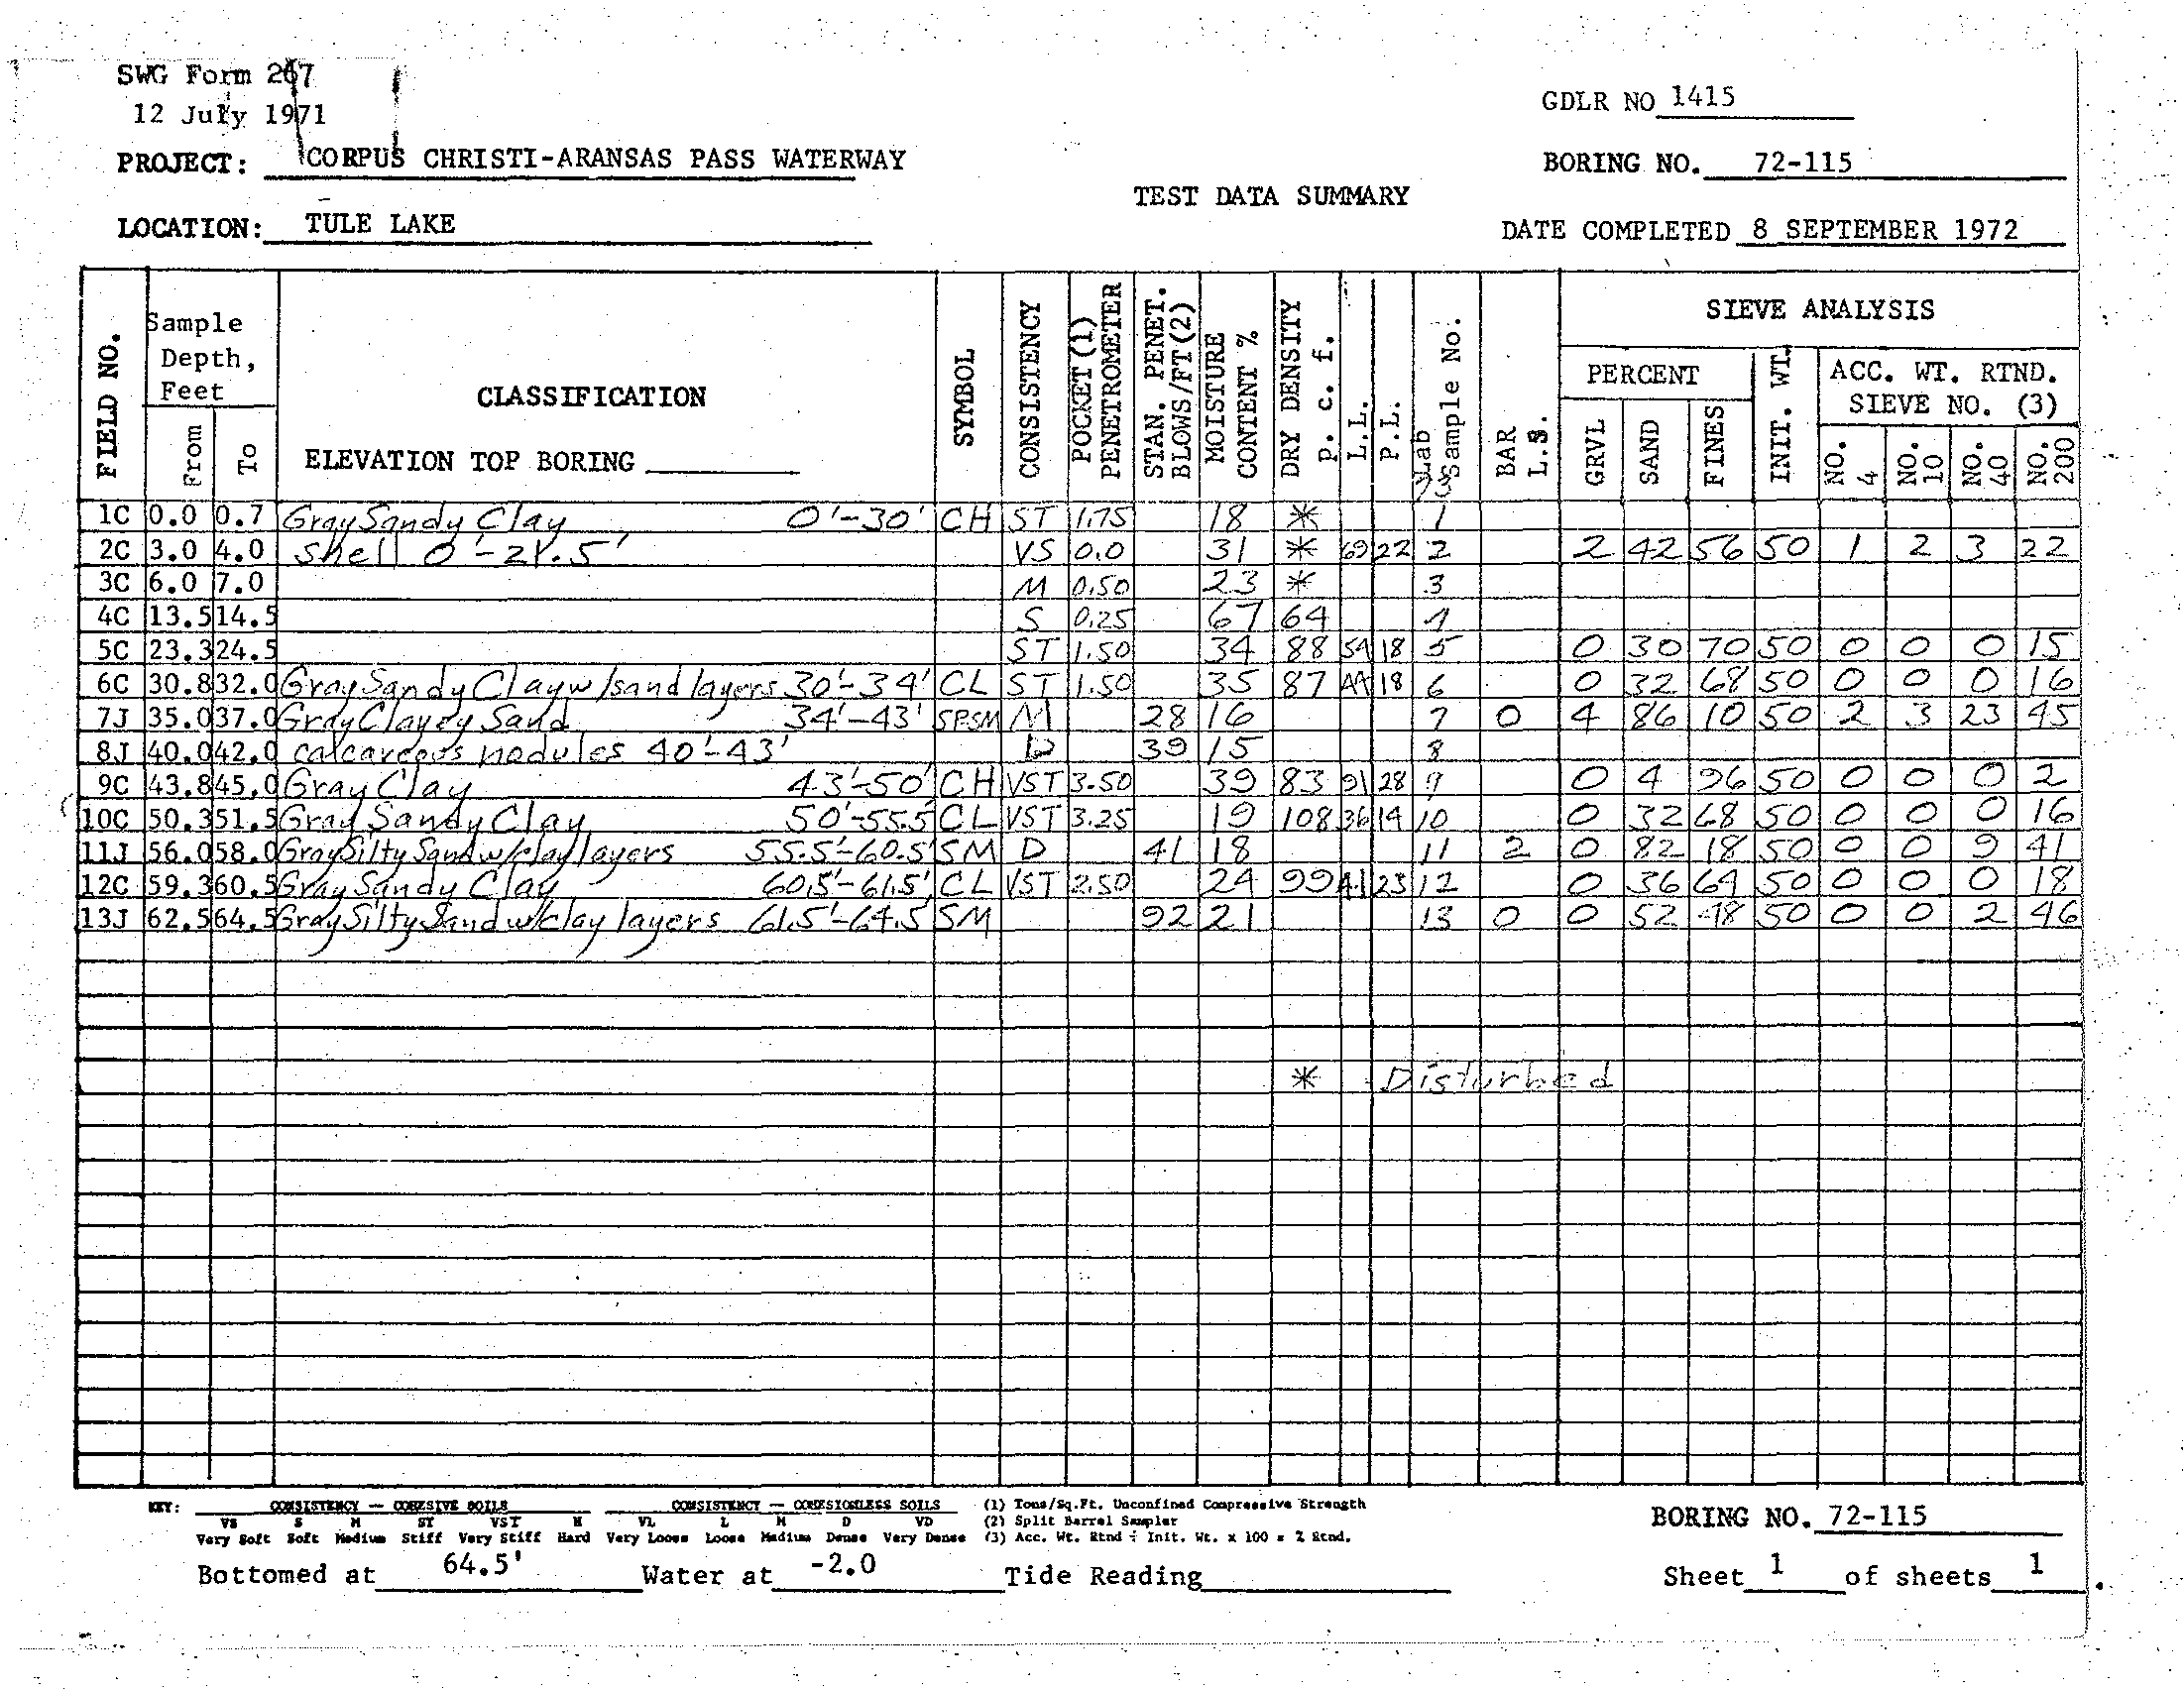 SWG Form 267
12 July 1971
GDLR NO 1415
PROJECT: CORPUS CHRISTI-ARANSAS PASS WATERWAY
BORING NO. 72-115
TEST DATA SUMMARY
LOCATION: TULE LAKE
DATE COMPLETED 8 SEPTEMBER 1972
FIELD NO.
Sample Depth, Feet
From
To
CLASSIFICATION
ELEVATION TOP BORING
SYMBOL
CONSISTENCY
POCKET (1) PENETROMETER
STAN. PENET. BLOWS/FT(2)
MOISTURE CONTENT %
DRY DENSITY P. c. f.
L.L.
P.L.
Lab Sample No.
BAR L.S.
SIEVE ANALYSIS
PERCENT
GRVL
SAND
FINES
INIT. WT.
ACC. WT. RTND.
SIEVE NO. (3)
NO. 4
NO. 10
NO. 40
NO. 200
1C 0.0 0.7 Gray Sandy Clay 0'-30' CH ST 1.75 18 * 1
2C 3.0 4.0 Shell 0'-21.5' VS 0.0 31 * 69 22 2 2 42 56 50 1 2 3 22
3C 6.0 7.0 M 0.50 23 * 3
4C 13.5 14.5 S 0.25 67 64 4
5C 23.3 24.5 ST 1.50 34 88 54 18 5 0 30 70 50 0 0 0 15
6C 30.8 32.0 Gray Sandy Clay w/sand layers 30'-34' CL ST 1.50 35 87 44 18 6 0 32 68 50 0 0 0 16
7J 35.0 37.0 Gray Clayey Sand 34'-43' SP-SM M 28 16 7 0 4 86 10 50 2 3 23 45
8J 40.0 42.0 calcareous nodules 40'-43' D 39 15 8
9C 43.8 45.0 Gray Clay 43'-50' CH VST 3.50 39 83 91 28 9 0 4 96 50 0 0 0 2
10C 50.3 51.5 Gray Sandy Clay 50'-55.5' CL VST 3.25 19 108 36 14 10 0 32 68 50 0 0 0 16
11J 56.0 58.0 Gray Silty Sand w/clay layers 55.5'-60.5' SM D 41 18 11 2 0 82 18 50 0 0 9 41
12C 59.3 60.5 Gray Sandy Clay 60.5'-61.5' CL VST 2.50 24 99 41 23 12 0 36 64 50 0 0 0 18
13J 62.5 64.5 Gray Silty Sand w/clay layers 61.5'-64.5' SM 92 21 13 0 0 52 48 50 0 0 2 46
* Disturbed
KEY: CONSISTENCY — COHESIVE SOILS CONSISTENCY — COHESIONLESS SOILS (1) Tons/Sq.Ft. Unconfined Compressive Strength
VS S M ST VST H VL L M D VD (2) Split Barrel Sampler
Very Soft Soft Medium Stiff Very Stiff Hard Very Loose Loose Medium Dense Very Dense (3) Acc. Wt. Rtnd ÷ Init. Wt. x 100 = % Rtnd.
BORING NO. 72-115
Bottomed at 64.5' Water at -2.0 Tide Reading
Sheet 1 of sheets 1